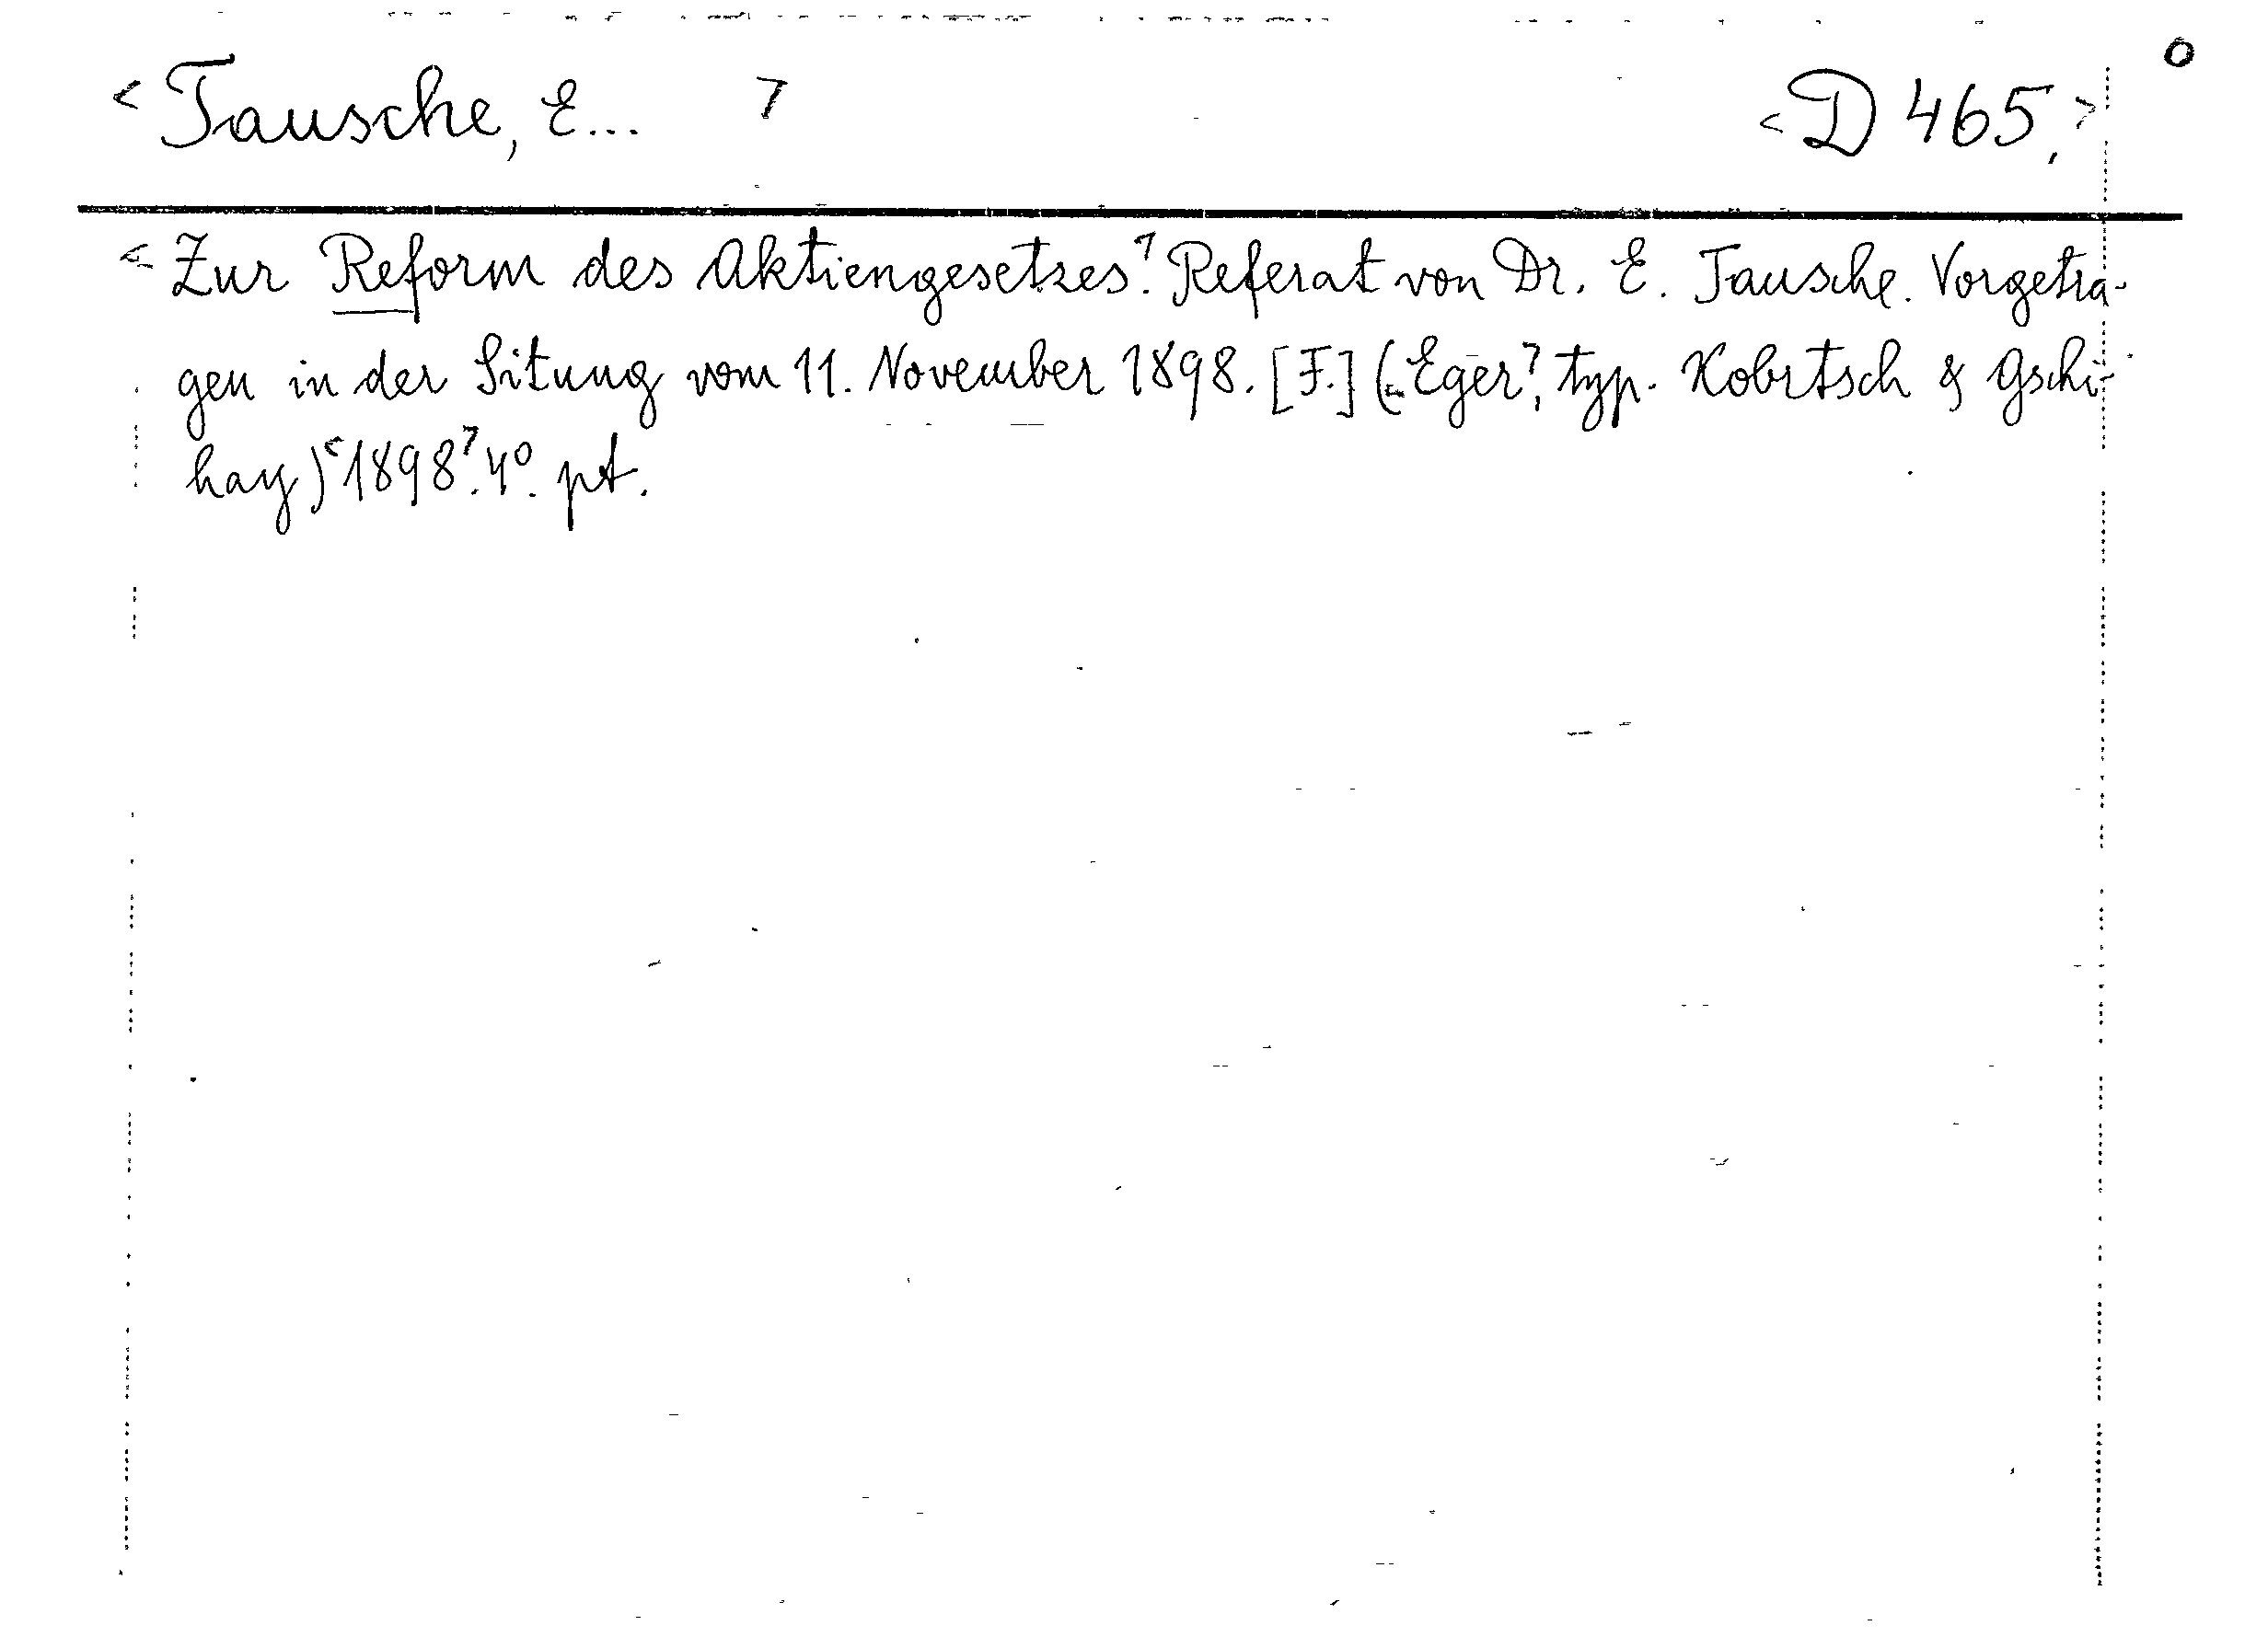 <Tausche, E... > <D 465.> o
<Zur Reform des Aktiengesetzes>. Referat von Dr. E. Tausche. Vorgetra-
gen in der Situng vom 11. November 1898. [F.] (<Eger>, typ. Kobrtsch & Gschi-
hay) <1898>. 4°. pt.